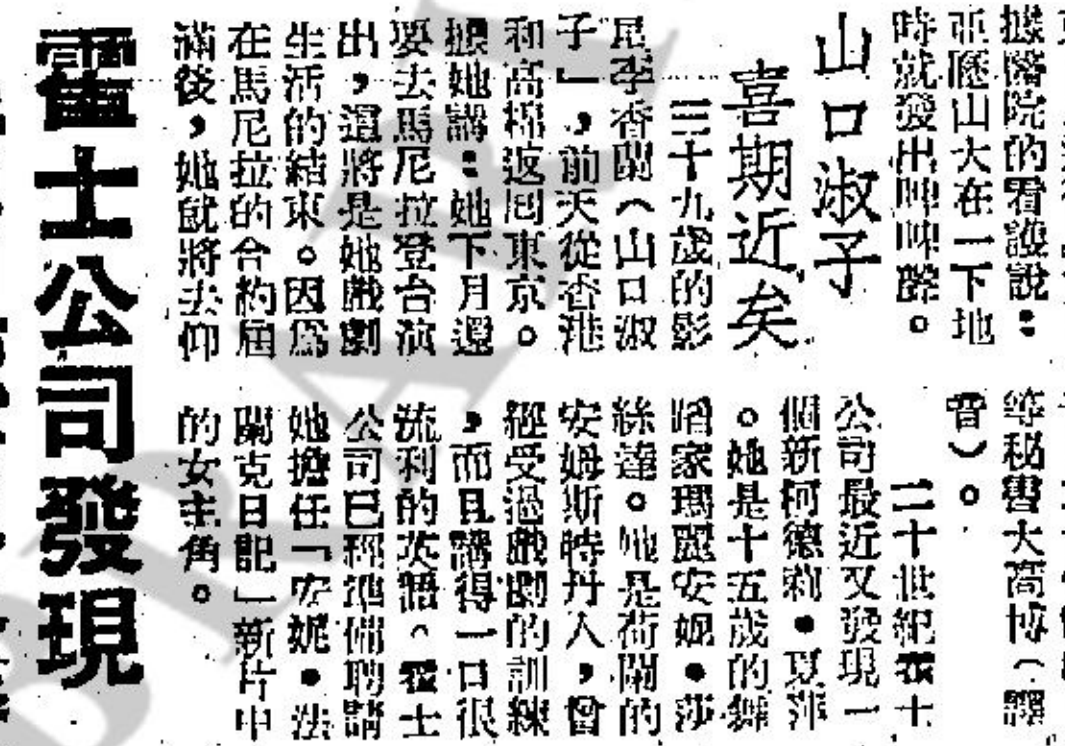 據醫院的看護說：
亞歷山大在一下地
時就發出呻呻聲。
山口淑子
喜期近矣
三十九歲的影
星李香蘭（山口淑
子」，前天從香港
和高棉返回東京。
據她講：她下月還
要去馬尼拉登台演
出，還將是她戲劇
生活的結束。因爲
在馬尼拉的合約屆
滿後，她就將去仰
等秘書大高博（譯
音）。
二十世紀霍士
公司最近又發現一
個新柯德莉·夏萍
。她是十五歲的舞
蹈家瑪麗安妮·莎
絲達。她是荷蘭的
安姆斯特丹人，曾
經受過戲劇的訓練
，而且講得一口很
流利的英語。霍士
公司已經準備聘請
她擔任「安妮·法
蘭克日記」新片中
的女主角。
霍士公司發現